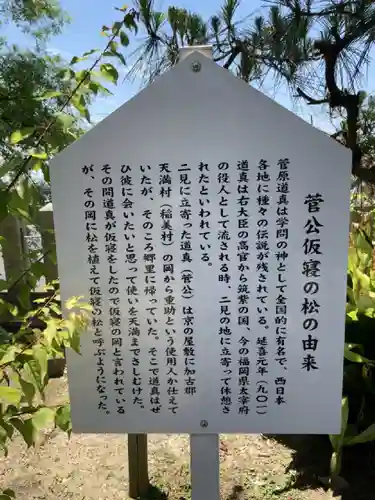 菅公仮寝の松の由来
菅原道真は学問の神として全国的に有名で、西日本
各地に種々の伝説が残されている。延喜元年（九〇一）
道真は右大臣の高官から筑紫の国、今の福岡県太宰府
の役人として流される時、二見の地に立寄って休憩さ
れたといわれている。
二見に立寄った道真（菅公）は京の屋敷に加古郷
天満村（稲美村）の岡から重助という使用人が仕えて
いたが、そのころ郷里に帰っていた。そこで道真はぜ
ひ彼に会いたいと思って使いを天満の岡にさしむけた。
その間道真が仮寝をしたので仮寝の岡と言われている
が、その岡に松を植えて仮寝の松と呼ぶようになった。